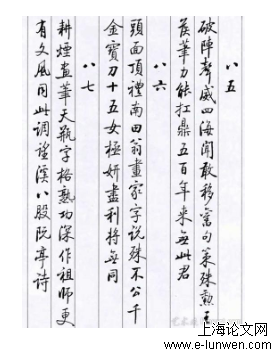 八五
破陣聲威四海聞敢移舊句策殊勳王
侯筆力能扛鼎五百年來無此君
八六
頭面頂禮南田翁畫家字說殊不公千
金寶刀十五女極妍盡利將無同
八七
耕煙畫筆天瓶字格熟功深作祖師更
有文風同此調望溪八股阮亭詩
上海论文网
www.e-lunwen.com